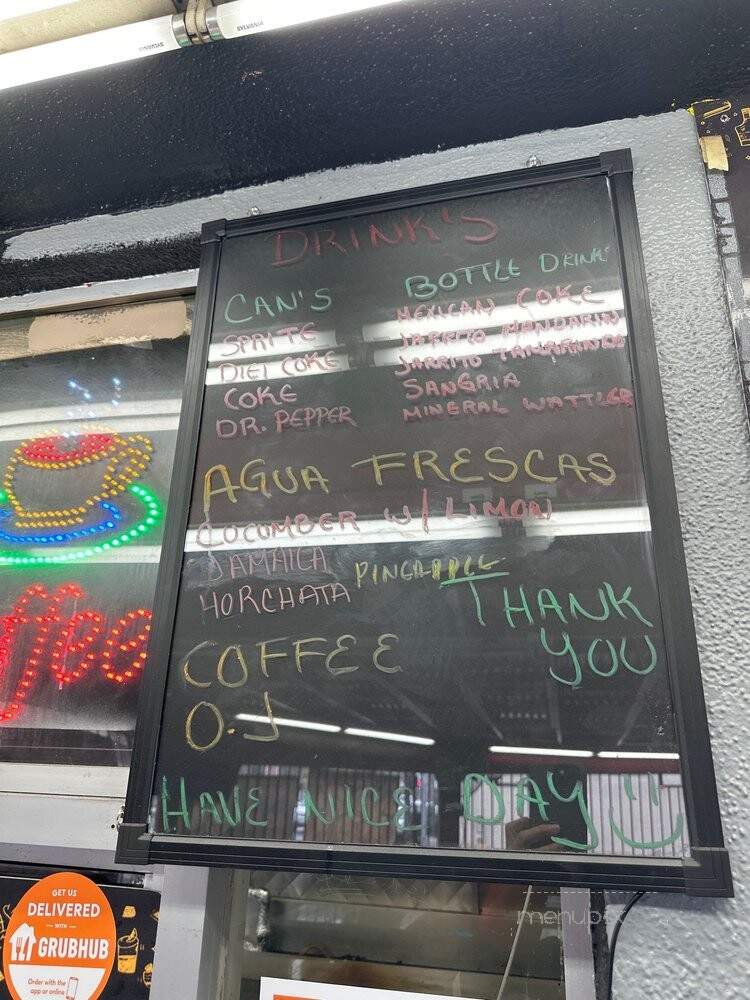 SYLVANIA
SYLVANIA
DRINK'S
CAN'S
SPRITE
DIET COKE
COKE
DR. PEPPER
BOTTLE DRINK'
MEXICAN COKE
JARRITO MANDARIN
JARRITO
SANGRIA
MINERAL WATTLER
AGUA FRESCAS
COCOMBER W/ LIMON
JAMAICA
HORCHATA
PINEAPPLE
THANK
YOU
COFFEE
O.J
HAVE NICE DAY
ffee
GET US
DELIVERED
WITH
GRUBHUB
Order with the
app or online
menupix